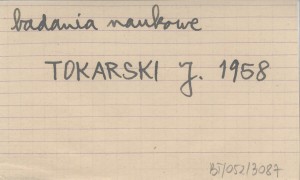 badania naukowe
TOKARSKI J. 1958
BJ/052/3087